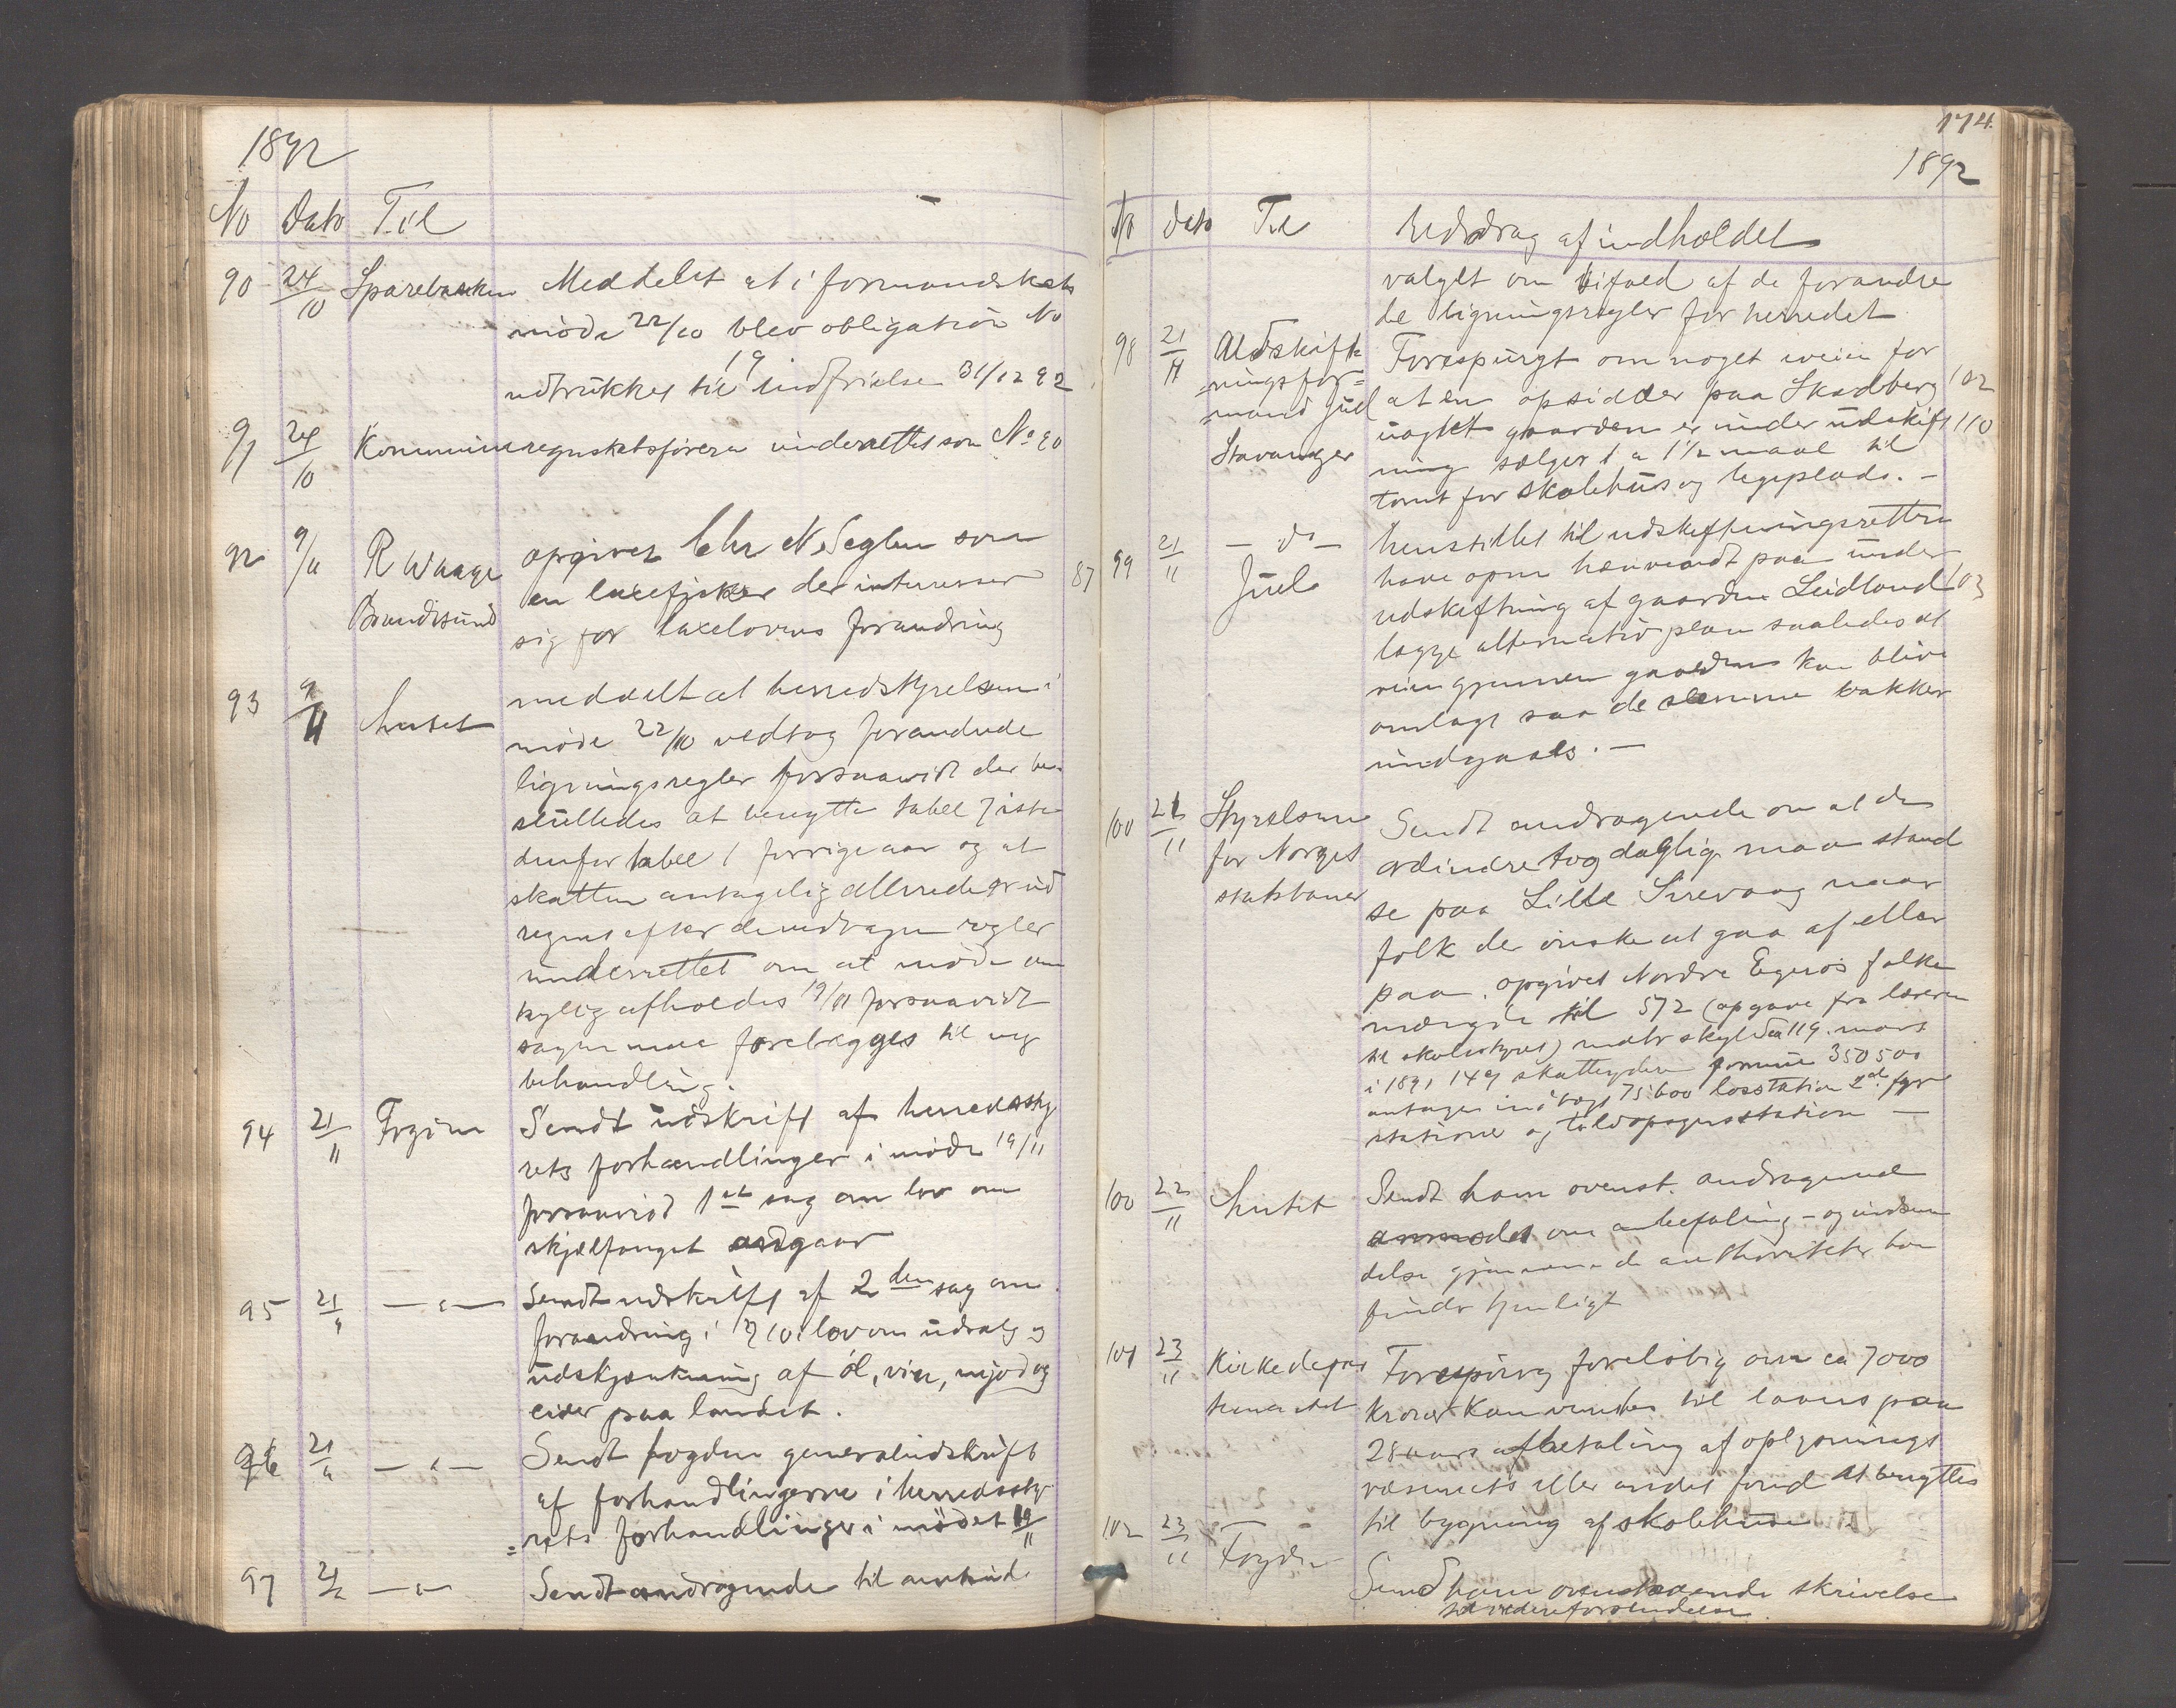 1892
No Dato Til
90 24/10 Sparebanken Meddelt at i formandskabs
møde 22/10 blev obligation No
19
udtrukket til indfrielse 31/12 92
91 24/10 Kommuneregnskabsføreren underrettet som No 90
92 9/11 R Waage opgivet Chr N. Seglem som
Brandsund en laxefisker der interesserer
sig for laxelovens forandring
87
93 9/11 Amtet meddelt at herredstyrelsen i
møde 22/10 vedtog forandrede
ligningsregler forsaavidt der be-
sluttedes at benytte tabel 7 iste
denfor tabel 1 forrige aar og at
skatten antagelig allerede er ud
regnet efter de vedtagne regler
underrettet om at møde
afholdes 19/11 forsaavidt
sagen maa forelægges til ny
behandling.
94 21/11 Fogden Sendt udskrift af herredssty
rets forhandlinger i møde 19/11
forsaavidt 1ste sag om lov om
skjælfanget angaar
95 21/11 — " — Sendt udskrift af 2den sag om
forandring i § 10 i lov om udsalg og
udskjænkning af øl, vin, mjød og
cider paa landet.
96 21/11 — " — Sendt fogden generaludskrift
af forhandlingerne i herredssty-
=rets forhandlinger i mødet 19/11
97 21/11 — " — Sendt andragende til amtet
174.
1892
No Dato Til Uddrag af indholdet
valgt om bifald af de forandre
de ligningsregler for herredet
98 21/11 Udskift- Forespurgt om noget iveien for
=ningsfor= at en opsidder paa Skadberg 102
=mand Juel uagtet gaarden er under udskift 110
Stavanger ning sælger 1 a 1½ maal til
tomt for skolehus og legeplads. —
99 21/11 — do — henstillet til udskiftningsretten
Juel have opm henvendt paa under
udskiftning af gaarden Leidland 103
lægge alternativ plan saaledes at
veien gjennem gaarden kan blive
omlagt saa de slemme bakker
undgaaes. —
100 22/11 Styrelsen Sendt andragende om at de
for Norges ordinære tog daglig maa stand
statsbaner se paa Lille Sirevaag naar
folk der ønske at gaa af eller
paa. opgivet Nordre Egerøs folke
mængde til 572 (opgave fra læreren
til skolestyret) matr skyld ca 119. mark
i 1891 149 skatteydere formue 350500
antagen indtægt 75600 losstation 2de fyr
stationer og toldopsynsstation —
100 22/11 Amtet Sendt ham ovenst. andragende
anmodet om anbefaling - og indsen
delse gjennem de authoriteter han
finder tjenligt
101 23/11 Kirkedepar Forespurg foreløbig om ca 7000
tementet kroner kan ventes til laans paa
28 aars afbetaling af oplysnings
væsenets eller andet fond at benyttes
til bygning af skolehuse
102 23/11 Fogden
Send ham ovenstaaende skrivelse
til videreforsendelse